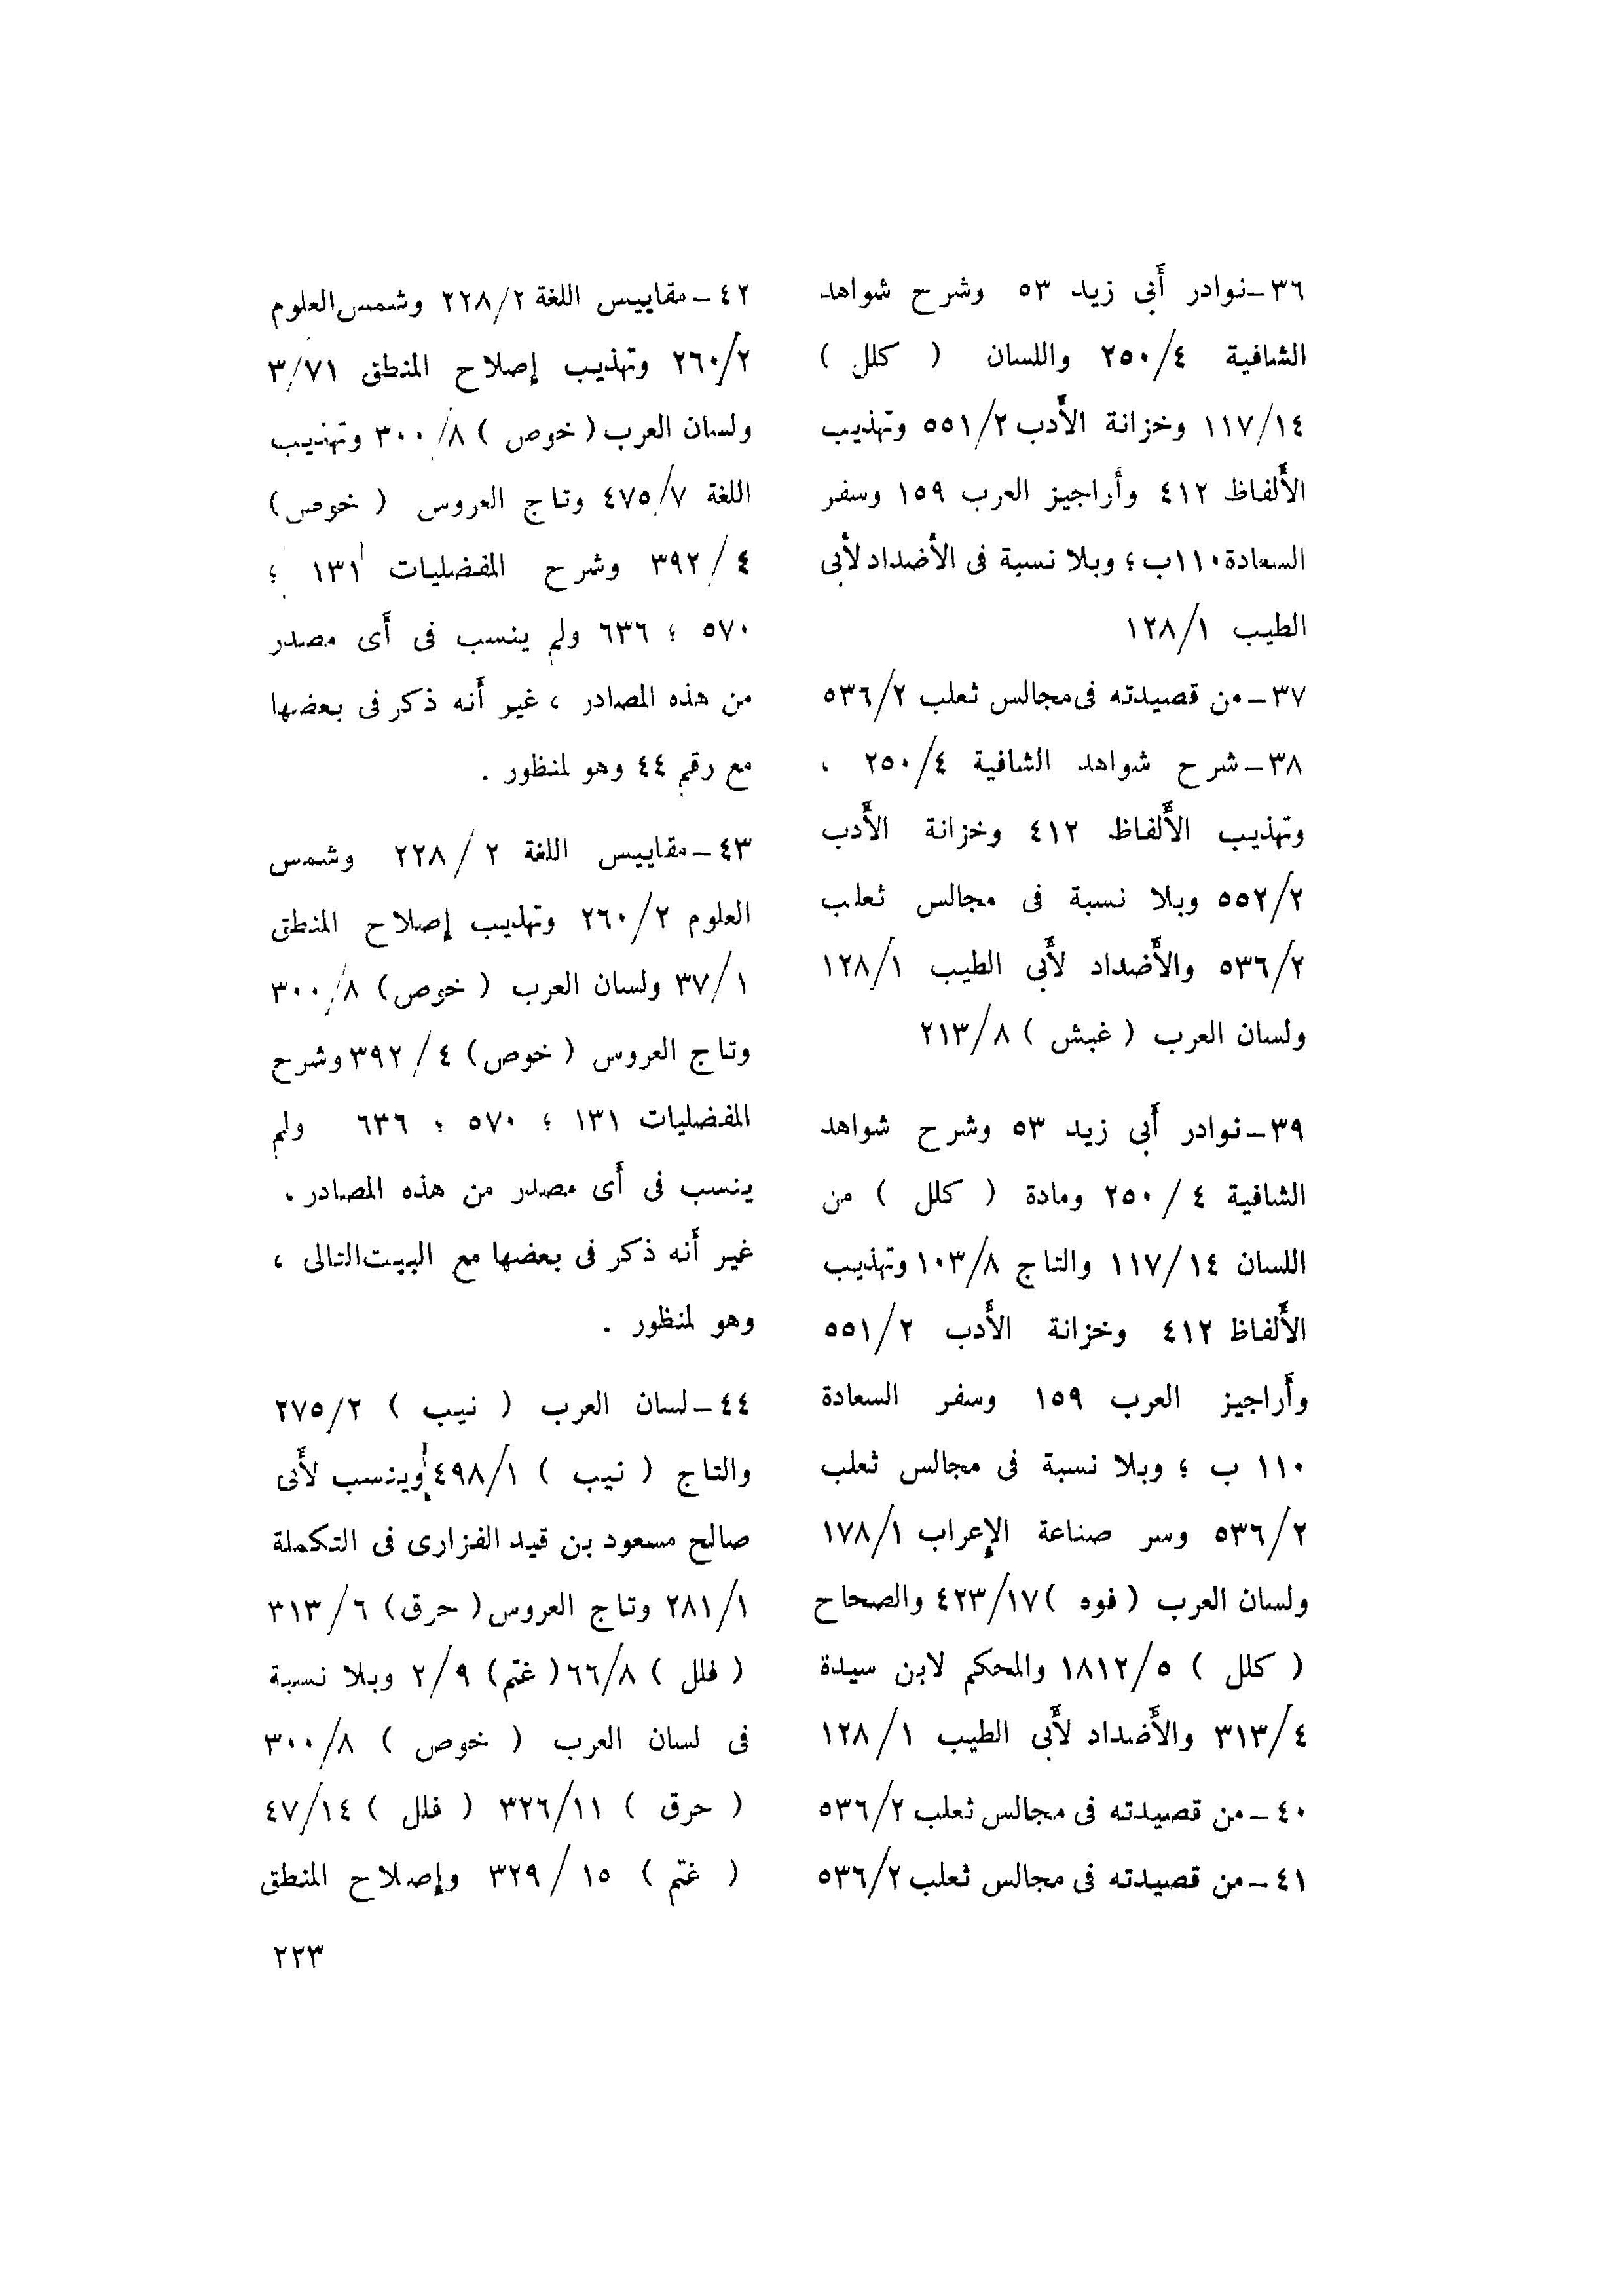 ٣٦ـ نوادر أَبى زيد ٥٣ وشرح شواهد
الشافية ٢٥٠/٤ واللسان ( كلل )
١١٧/١٤ وخزانة الأَدب ٥٥١/٢ وتهذيب
الأَلفاظ ٤١٢ وأراجيز العرب ١٥٩ وسفر
السعادة ١١٠ب ؛ وبلا نسبة فى الأضداد لأبى
الطيب ١٢٨/١
٣٧ـ من قصيدته فى مجالس ثعلب ٥٣٦/٢
٣٨ـ شرح شواهد الشافية ٢٥٠/٤ ،
وتهذيب الأَلفاظ ٤١٢ وخزانة الأَدب
٥٥٢/٢ وبلا نسبة فى مجالس ثعلب
٥٣٦/٢ والأَضداد لأَبى الطيب ١٢٨/١
ولسان العرب ( غبش ) ٢١٣/٨
٣٩ـ نوادر أَبى زيد ٥٣ وشرح شواهد
الشافية ٤ / ٢٥٠ ومادة ( كلل ) من
اللسان ١١٧/١٤ والتاج ١٠٣/٨ وتهذيب
الأَلفاظ ٤١٢ وخزانة الأَدب ٥٥١/٢
وأَراجيز العرب ١٥٩ وسفر السعادة
١١٠ ب ؛ وبلا نسبة فى مجالس ثعلب
٥٣٦/٢ وسر صناعة الإعراب ١٧٨/١
ولسان العرب ( فوه ) ٤٢٣/١٧ والصحاح
( كلل ) ١٨١٢/٥ والمحكم لابن سيدة
٣١٣/٤ والأَضداد لأَبى الطيب ١٢٨/١
٤٠ـ من قصيدته فى مجالس ثعلب ٥٣٦/٢
٤١ـ من قصيدته فى مجالس ثعلب ٥٣٦/٢
٤٢ـ مقاييس اللغة ٢٢٨/٢ وشمس العلوم
٢٦٠/٢ وتهذيب إصلاح المنطق ٣/٧١
ولسان العرب ( خوص ) ٣٠٠/٨ وتهذيب
اللغة ٤٧٥/٧ وتاج العروس ( خوص)
٤ / ٣٩٢ وشرح المفضليات ١٣١ ؛
٥٧٠ ؛ ٦٣٦ ولم ينسب فى أَى مصدر
من هذه المصادر ، غير أَنه ذكر فى بعضها
مع رقم ٤٤ وهو لمنظور .
٤٣ـ مقاييس اللغة ٢ / ٢٢٨ وشمس
العلوم ٢٦٠/٢ وتهذيب إصلاح المنطق
٣٧/١ ولسان العرب ( خوص) ٣٠٠/٨
وتاج العروس ( خوص) ٤ / ٣٩٢ وشرح
المفضليات ١٣١ ؛ ٥٧٠ ؛ ٦٣٦ ولم
ينسب فى أَى مصدر من هذه المصادر ،
غير أَنه ذكر فى بعضها مع البيت التالى ،
وهو لمنظور .
٤٤ـ لسان العرب ( نيب ) ٢٧٥/٢
والتاج ( نيب ) ٤٩٨/١ وينسب لأَبى
صالح مسعود بن قيد الفزارى فى التكملة
٢٨١/١ وتاج العروس ( حرق) ٦ / ٣١٣
( فلل ) ٦٦/٨ ( غتم) ٢/٩ وبلا نسبة
فى لسان العرب ( خوص ) ٣٠٠/٨
( حرق ) ٣٢٦/١١ ( فلل ) ٤٧/١٤
( غتم ) ١٥ / ٣٢٩ وإصلاح المنطق
٢٢٣